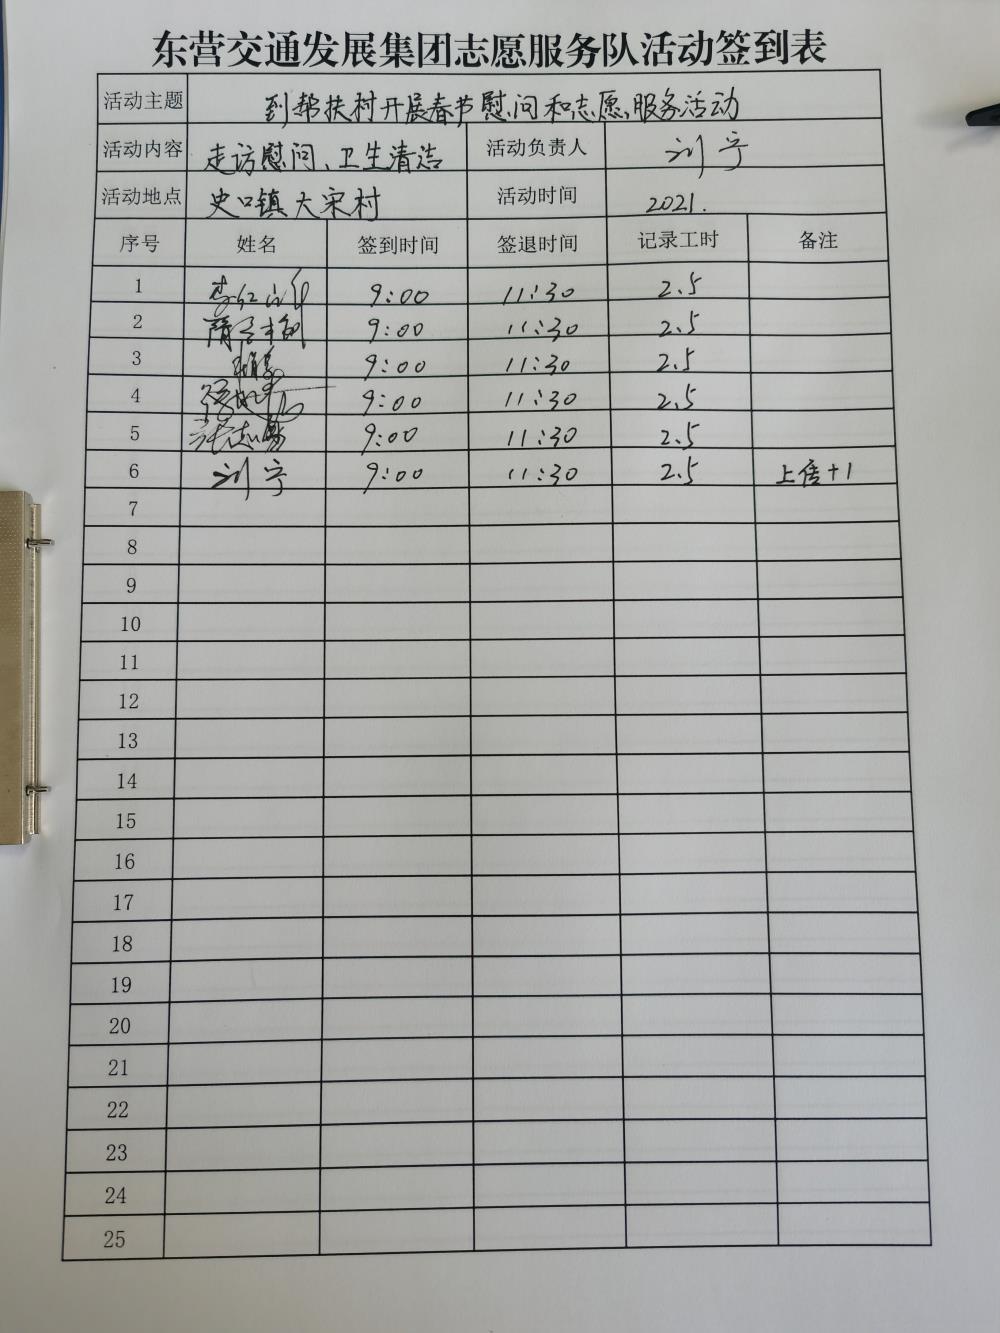 东营交通发展集团志愿服务队活动签到表
活动主题 到帮扶村开展春节慰问和志愿服务活动
活动内容 走访慰问、卫生清洁 活动负责人 刘宁
活动地点 史口镇大宋村 活动时间 2021.
序号 姓名 签到时间 签退时间 记录工时 备注
1 9:00 11:30 2.5
2 9:00 11:30 2.5
3 9:00 11:30 2.5
4 9:00 11:30 2.5
5 张志勇 9:00 11:30 2.5
6 刘宁 9:00 11:30 2.5 上传+1
7
8
9
10
11
12
13
14
15
16
17
18
19
20
21
22
23
24
25